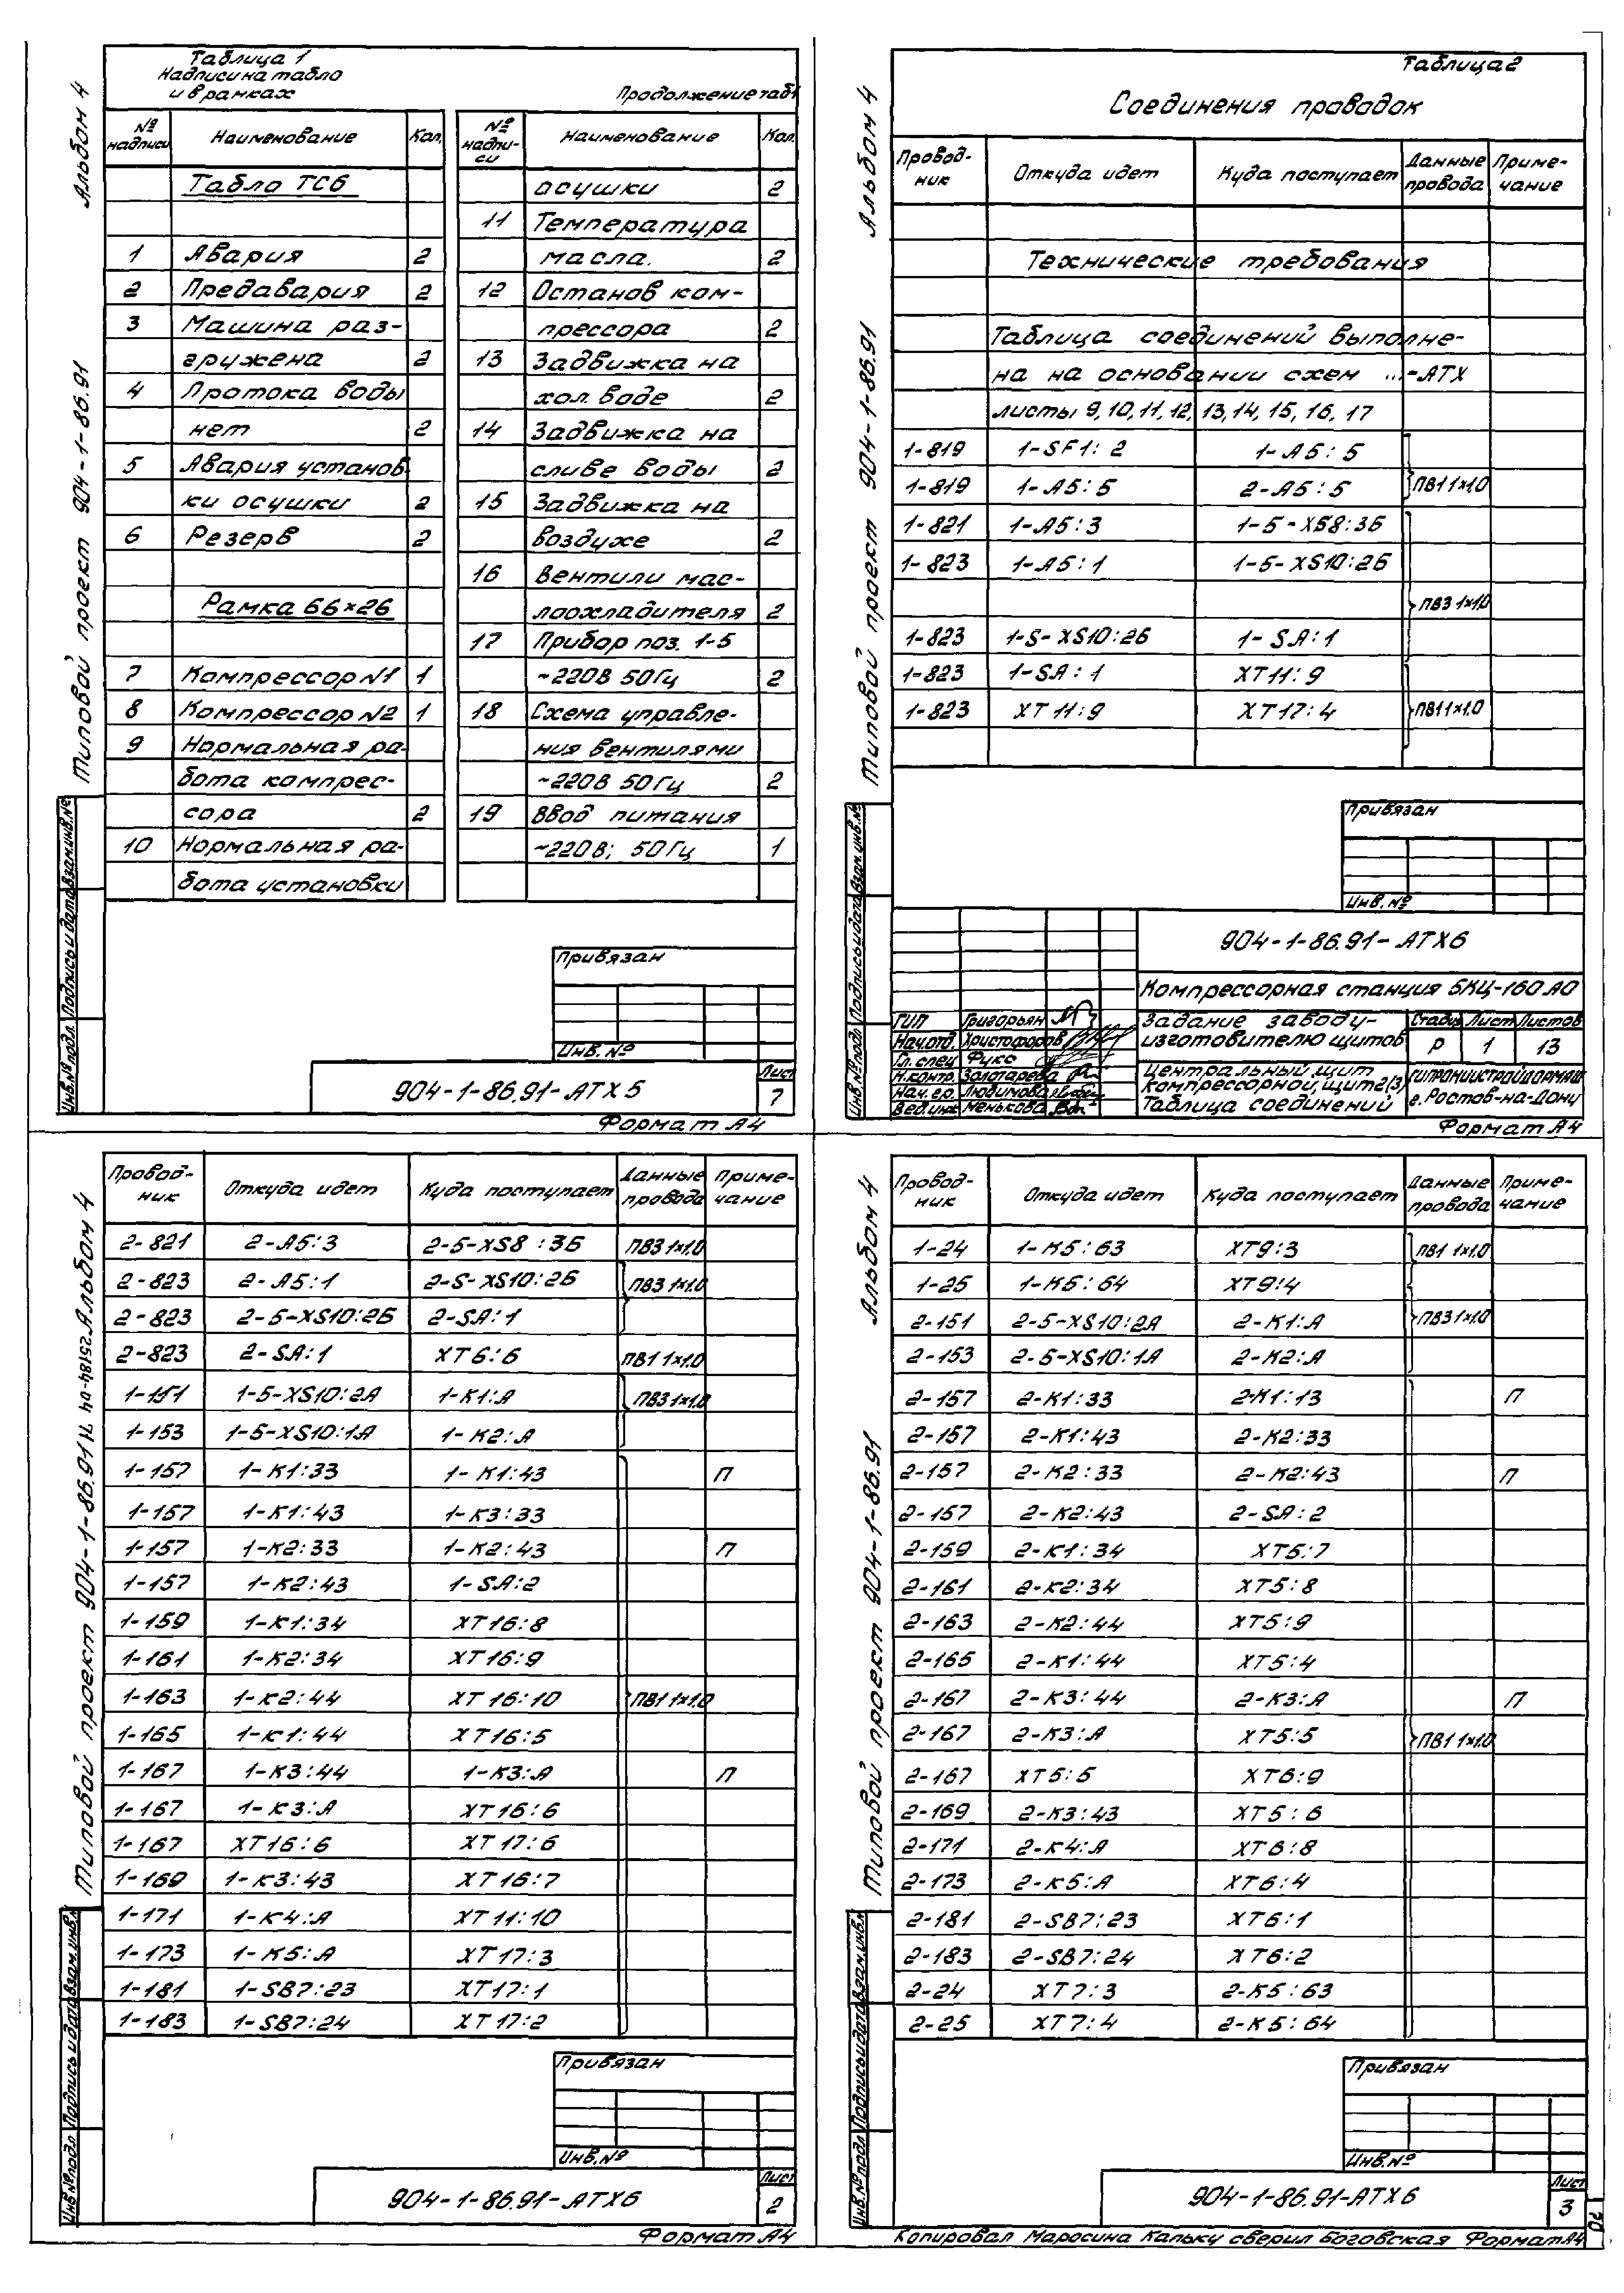 Альбом 4
Типовой проект 904-1-86.91
Таблица 1
Надписи на табло
и в рамках
Продолжение табл
№ надписи Наименование Кол.
Табло ТСб
1 Авария 2
2 Предавария 2
3 Машина раз-
гружена 2
4 Протока воды
нет 2
5 Авария установ
ки осушки 2
6 Резерв 2
Рамка 66×26
7 Компрессор N1 1
8 Компрессор N2 1
9 Нормальная ра-
бота компрес-
сора 2
10 Нормальная ра-
бота установки
№ надпи-си Наименование Кол.
осушки 2
11 Температура
масла. 2
12 Останов ком-
прессора 2
13 Задвижка на
хол. воде 2
14 Задвижка на
сливе воды 2
15 Задвижка на
воздухе 2
16 Вентили мас-
лоохладителя 2
17 Прибор поз. 1-5
~220В 50Гц 2
18 Схема управле-
ния вентилями
~220В 50Гц 2
19 Ввод питания
~220В; 50Гц 1
Привязан
Инв. №
904-1-86.91-АТХ5
Лист
7
Инв.№подл. Подпись и дата Взам.инв.№
Формат А4
Альбом 4
Типовой проект 904-1-86.91
Таблица 2
Соединения проводок
Провод-ник Откуда идет Куда поступает Данные провода Приме-чание
Технические требования
Таблица соединений выполне-
на на основании схем ...-АТХ
листы 9, 10, 11, 12, 13, 14, 15, 16, 17
1-819 1-SF1:2 1-А5:5
1-819 1-А5:5 2-А5:5 ПВ1 1×1,0
1-821 1-А5:3 1-5-XS8:3Б
1-823 1-А5:1 1-5-XS10:2Б
ПВ3 1×1,0
1-823 1-S-XS10:2Б 1-SA:1
1-823 1-SA:1 XT11:9
1-823 XT11:9 XT17:4 ПВ1 1×1,0
Привязан
Инв. №
904-1-86.91-АТХ6
Компрессорная станция 5КЦ-160А0
ГИП Григорьян
Нач.отд. Христофоров
Гл. спец Фукс
Н.контр. Золотарева
Нач.гр. Людинова
Вед.инж Менькова
Задание заводу-
изготовителю щитов
Стадия Лист Листов
Р 1 13
Центральный щит
компрессорной, щит2(3)
Таблица соединений
ГИПРОНИИСТРОЙДОРМАШ
г. Ростов-на-Дону
Инв.№подл. Подпись и дата Взам.инв.№
Формат А4
25184-04
Альбом 4
Типовой проект 904-1-86.91
Провод-ник Откуда идет Куда поступает Данные провода Приме-чание
2-821 2-А5:3 2-5-XS8:3Б ПВ3 1×1,0
2-823 2-А5:1 2-S-XS10:2Б ПВ3 1×1,0
2-823 2-5-XS10:2Б 2-SA:1
2-823 2-SA:1 XT6:6 ПВ1 1×1,0
1-151 1-5-XS10:2А 1-К1:А ПВ3 1×1,0
1-153 1-5-XS10:1А 1-К2:А
1-157 1-К1:33 1-К1:43 П
1-157 1-К1:43 1-К3:33
1-157 1-К2:33 1-К2:43 П
1-157 1-К2:43 1-SA:2
1-159 1-К1:34 XT16:8
1-161 1-К2:34 XT16:9
1-163 1-К2:44 XT16:10 ПВ1 1×1,0
1-165 1-К1:44 XT16:5
1-167 1-К3:44 1-К3:А П
1-167 1-К3:А XT16:6
1-167 XT16:6 XT17:6
1-169 1-К3:43 XT16:7
1-171 1-К4:А XT11:10
1-173 1-К5:А XT17:3
1-181 1-SB7:23 XT17:1
1-183 1-SB7:24 XT17:2
Привязан
Инв.№
904-1-86.91-АТХ6
Лист
2
Инв.№подл Подпись и дата Взам.инв.№
Формат А4
Альбом 4
Типовой проект 904-1-86.91
Провод-ник Откуда идет Куда поступает Данные провода Приме-чание
1-24 1-К5:63 XT9:3 ПВ1 1×1,0
1-25 1-К5:64 XT9:4
2-151 2-5-XS10:2А 2-К1:А ПВ3 1×1,0
2-153 2-5-XS10:1А 2-К2:А
2-157 2-К1:33 2-К1:13 П
2-157 2-К1:43 2-К2:33
2-157 2-К2:33 2-К2:43 П
2-157 2-К2:43 2-SA:2
2-159 2-К1:34 XT5:7
2-161 2-К2:34 XT5:8
2-163 2-К2:44 XT5:9
2-165 2-К1:44 XT5:4
2-167 2-К3:44 2-К3:А П
2-167 2-К3:А XT5:5 ПВ1 1×1,0
2-167 XT5:5 XT6:9
2-169 2-К3:43 XT5:6
2-171 2-К4:А XT6:8
2-173 2-К5:А XT6:4
2-181 2-SB7:23 XT6:1
2-183 2-SB7:24 XT6:2
2-24 XT7:3 2-К5:63
2-25 XT7:4 2-К5:64
Привязан
Инв.№
904-1-86.91-АТХ6
Лист
3
Инв.№подл Подпись и дата Взам.инв.№
Копировал Маросина Кальку сверил Боговская Формат А4